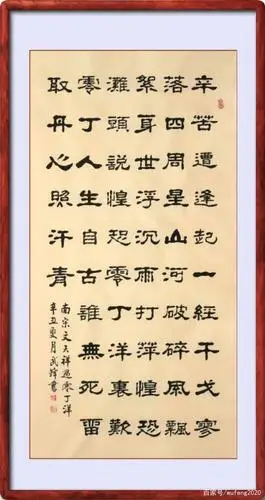 辛苦遭逢起一經干戈寥
落四周星山河破碎風飄
絮身世浮沉雨打萍惶恐
灘頭説惶恐零丁洋裏歎
零丁人生自古誰無死留
取丹心照汗青
南宋文天祥過零丁洋
辛丑夏月武鋒書
百家号/wufeng2020